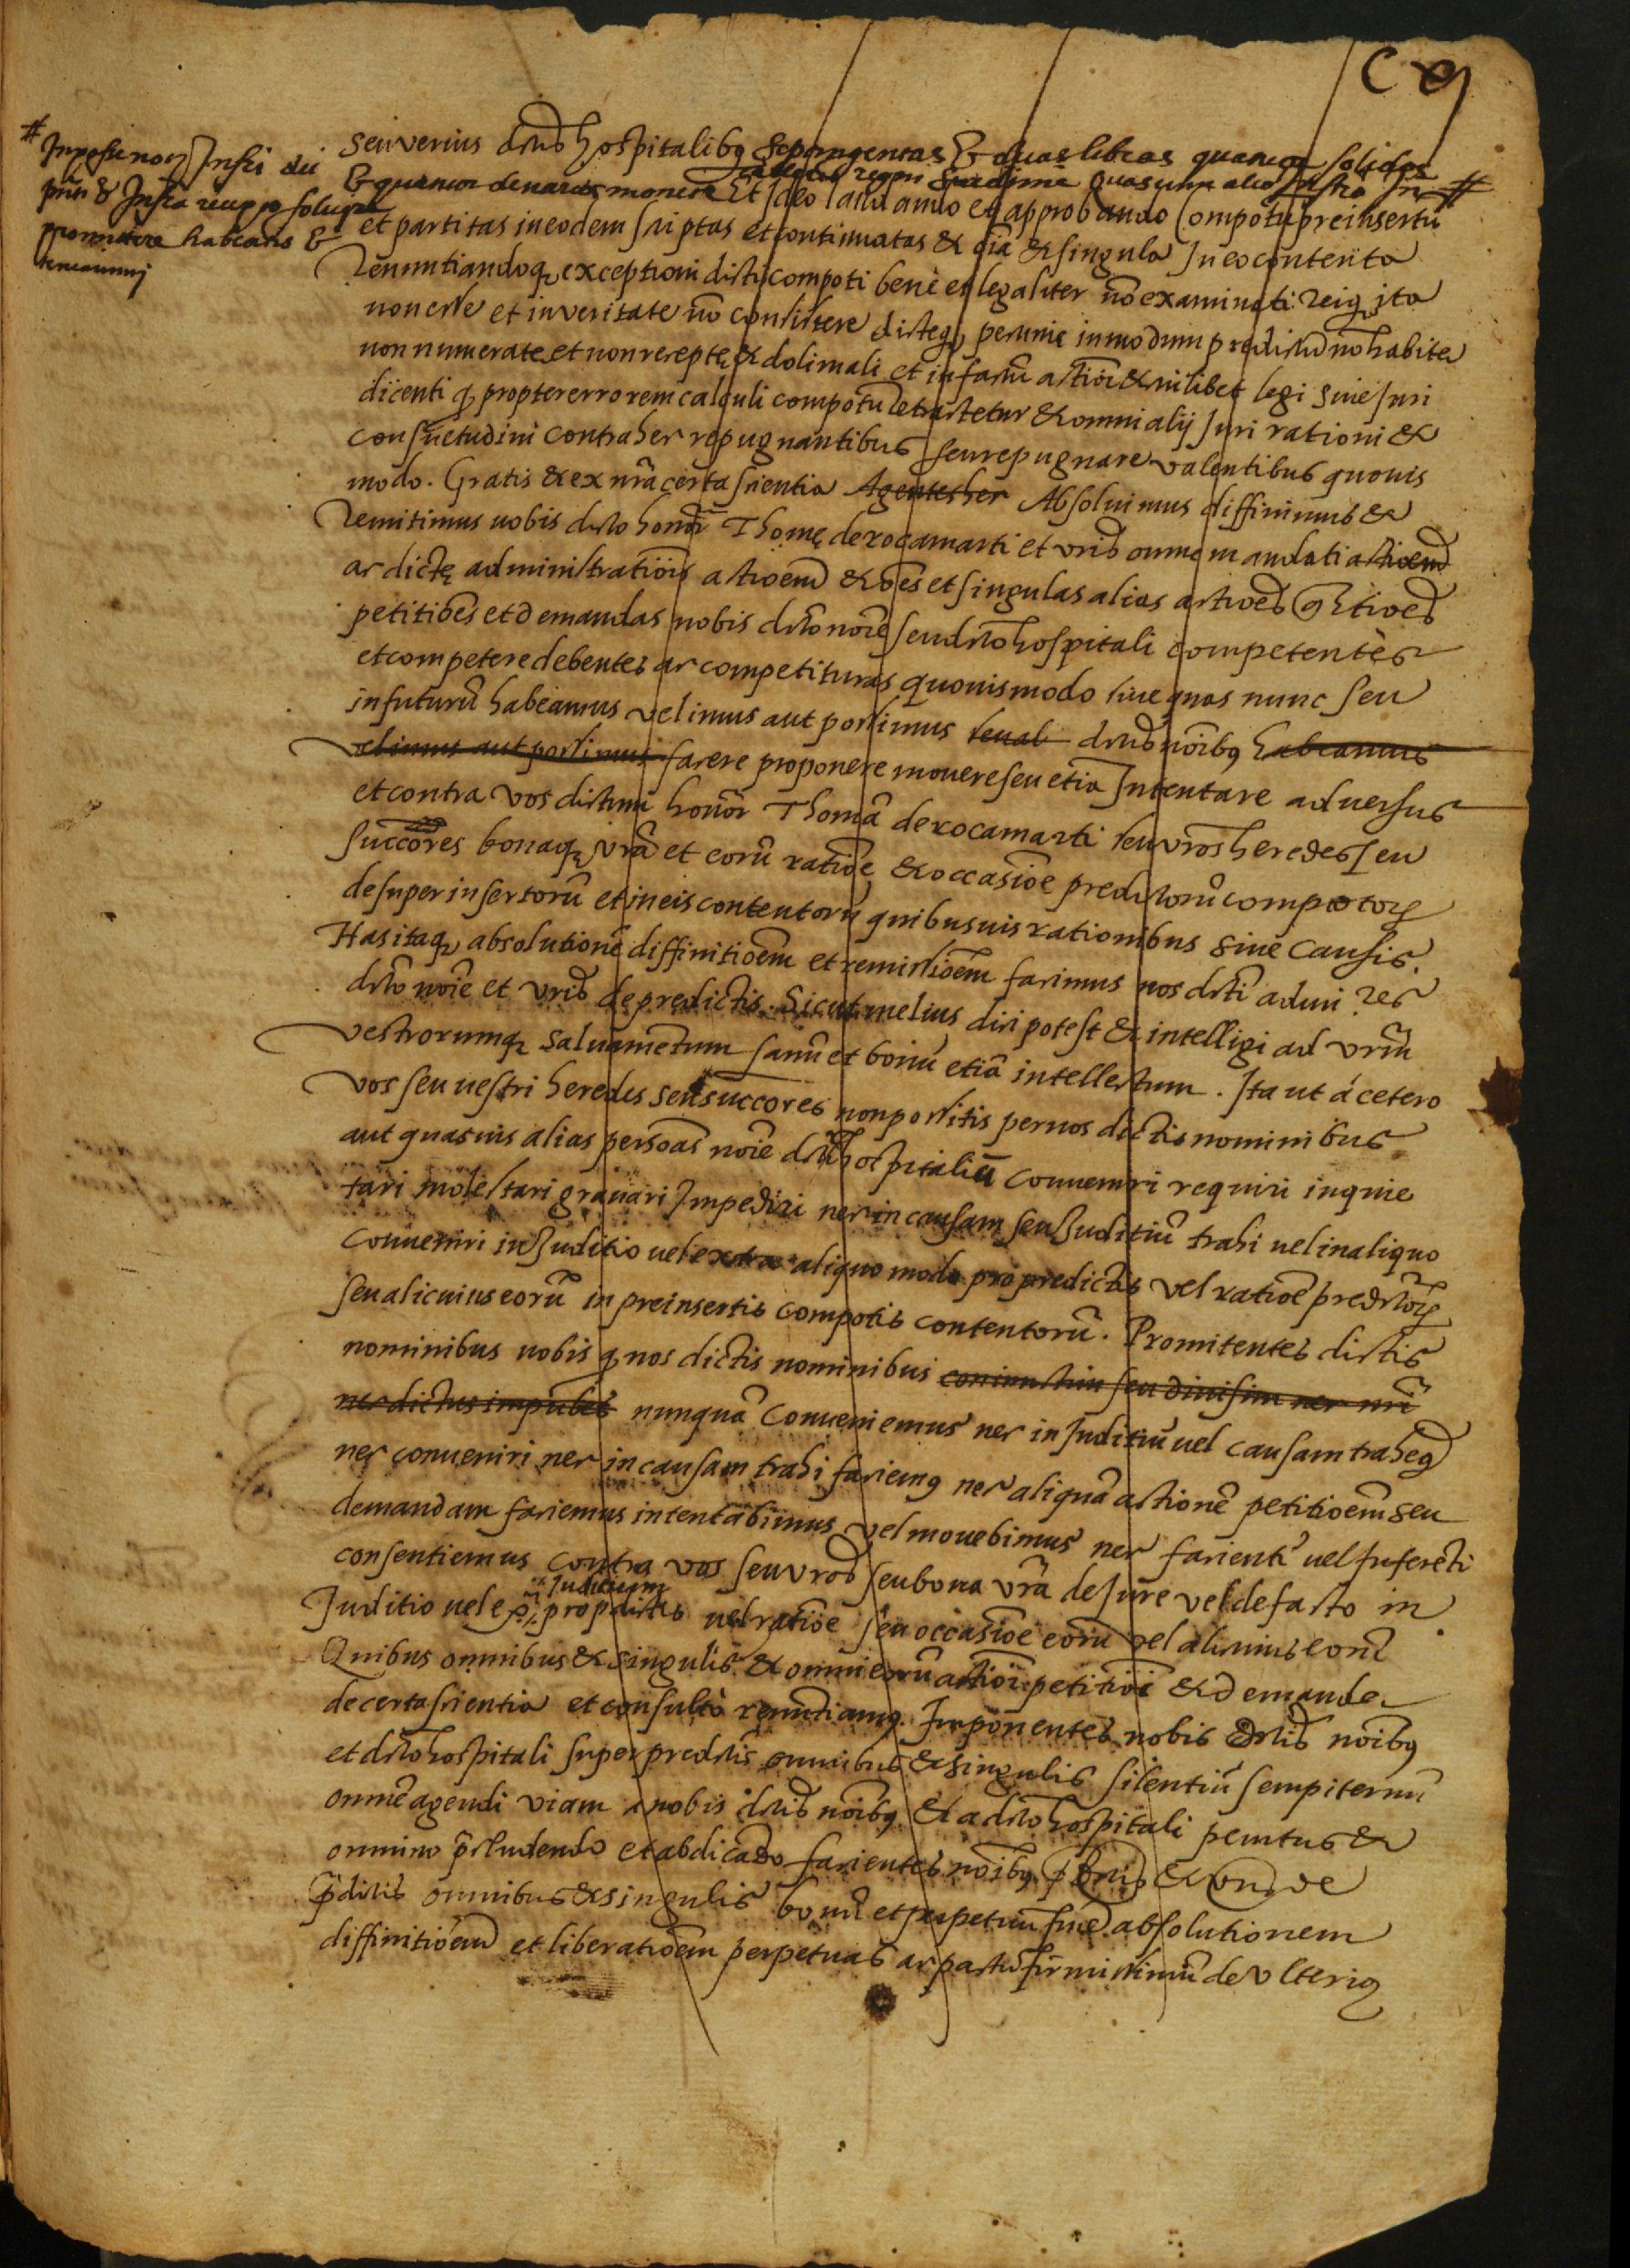 seu verius dictis hospitalibus septingentas & duas libras quatuor solidos
& quatuor denarios monete
Et ideo laudando et approbando Compotū preinsertū
et partitas in eodem scriptas et continuatas & oīa & singula In eo contenta
Renuntiandoq exceptioni dicti compoti benè et legaliter nō examinati reiq ita
non esse et in veritate nō consistere dicteq pecunie in modum predictū nō habite
non numerate et non recepte & doli mali et in factū actiōi & cuilibet legi siue Juri
dicenti q propter errorem calculi compotū retractetur & omni alij Juri rationi &
consuetudini contra hec repugnantibus seu repugnare valentibus quouis
modo. Gratis & ex nrā certa scientia Agentes hec Absoluimus diffinimus &
remitimus uobis dicto honor Thome de rocamarti et vris omnem mandati actioem
ac dicte administrationis actioem & oēs et singulas alias actioes q̄stioes
petitiōes et demandas nobis dicto noīe seu dicto hospitali competentès
et competere debentes ac competituras quouismodo siue quas nunc seu
in futurū habeamus velimus aut possimus seu ab dictis noibus habeamus
velimus aut possimus facere proponere mouere seu etiā Intentare aduersus
et contra vos dictum honor Thomā de rocamarti seu vros heredes seu
succōres bonaq vrā et eorū ratiōe & occasiōe predictorū compotorum
desuper insertorū et in eis contentorū quibusuis rationibus siue causis.
Has itaq absolutionē diffinitioēm et remissioēm facimus nos dicti admires
dicto noīe et vris de predictis. Sicut melius dici potest & intelligi ad vrm
vestrorumq saluamentum sanū et bonū etiā intellectum. Ita ut á cetero
vos seu uestri heredes seu succōres non possitis per nos dictis nominibus
aut quasuis alias persoās noīe dicti hospitalis conueniri requiri inquie
tari molestari grauari Impediri nec in causam seu Juditiū trahi uel in aliquo
conueniri in Juditio uel extra aliquo modo pro predictis vel ratiōe predictorum
seu alicuius eorū in preinsertis compotis contentorū. Promitentes dictis
nominibus uobis q nos dictis nominibus coniunctim seu diuisim nec nri
nec dictus impubes nunquā conueniemus nec in Juditiū uel causam trahemus
nec conueniri nec in causam trahi faciemus nec aliquā actionē petitioēm seu
demandam faciemus intentabimus vel mouebimus nec facienti uel Inferenti
consentiemus contra vos seu vros seu bona vrā de Jure vel de facto in
Juditio uel ex Juditium pro predictis uel ratiōe seu occasiōe eorū vel alicuius eorū
Quibus omnibus & singulis & omni eorū actiōi petitiōi & demande
de certa scientia et consultè renuntiamus. Imponentes nobis dictis noibus
et dicto hospitali super predictis omnibus & singulis silentiū sempiternū
omnē agendi viam a nobis dictis noibus & a dicto hospitali penitus &
omnino p̄cludendo et abdicādo facientes noibus p̄dictis & de
p̄dictis omnibus & singulis bonū et perpetuū finē absolutionem
diffinitioēm et liberatioēm perpetuas ac pactū firmissimū de vlterius